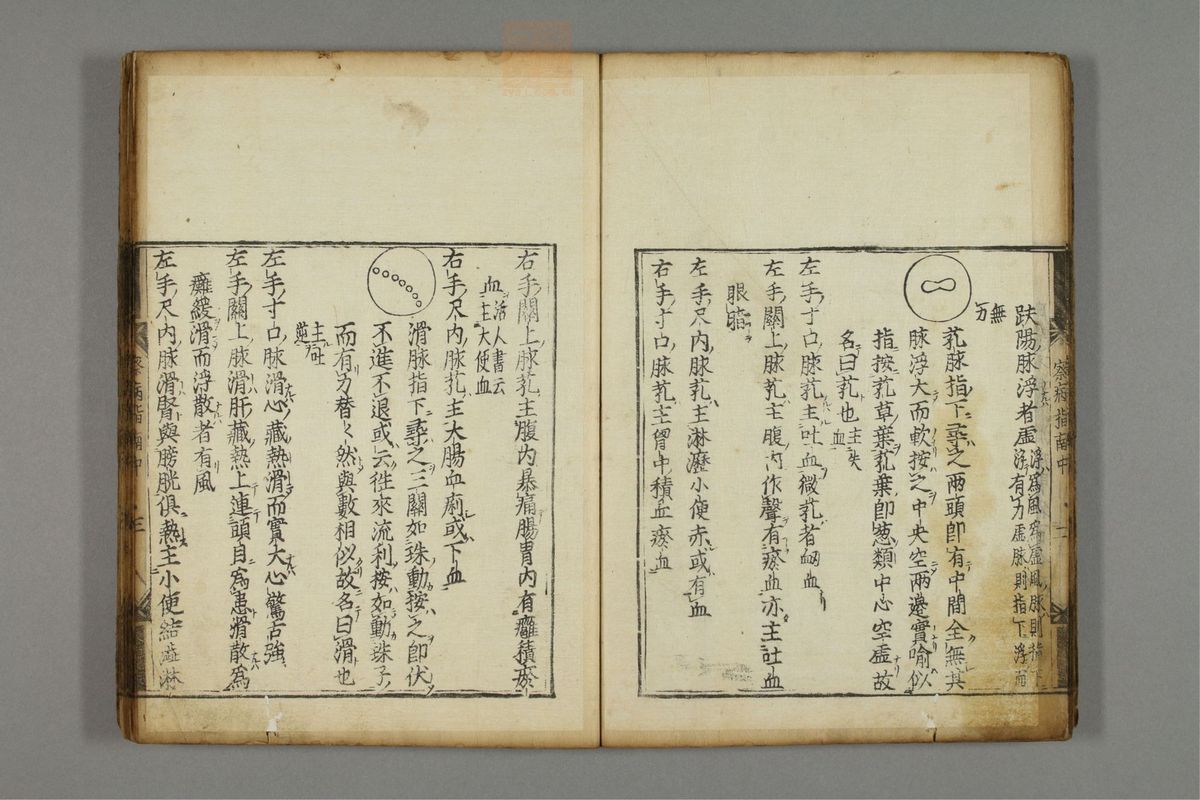 趺陽脉浮者虛浮爲風爲虛風脉則指下
浮有力虛脉則指下浮而
無力
芤脉指下尋之兩頭即有中間全無其
脉浮大而軟按之中央空兩邊實喻似
指按芤草葉芤葉即葱類中心空虛故
名曰芤也主失血
左手寸口脉芤主吐血微芤者衂血
左手關上脉芤主腹内作聲有瘀血亦主吐血
眼暗
左手尺内脉芤主淋瀝小便赤或有血
右手寸口脉芤主胷中積血瘀血
察病指南中
二
右手關上脉芤主腹内暴痛腸胃内有癰積瘀
血活人書云主大便血
右手尺内脉芤主大腸血痢或下血
滑脉指下尋之三關如珠動按之即伏
不進不退或云徃來流利按如動珠子
而有力替々然與數相似故名曰滑也
主吐逆
左手寸口脉滑心藏熱滑而實大心驚舌強
左手關上脉滑肝藏熱上連頭目爲患滑散爲
癱緩滑而浮散者有風
左手尺内脉滑腎與膀胱俱熱主小便結澁淋
察病指南中
三